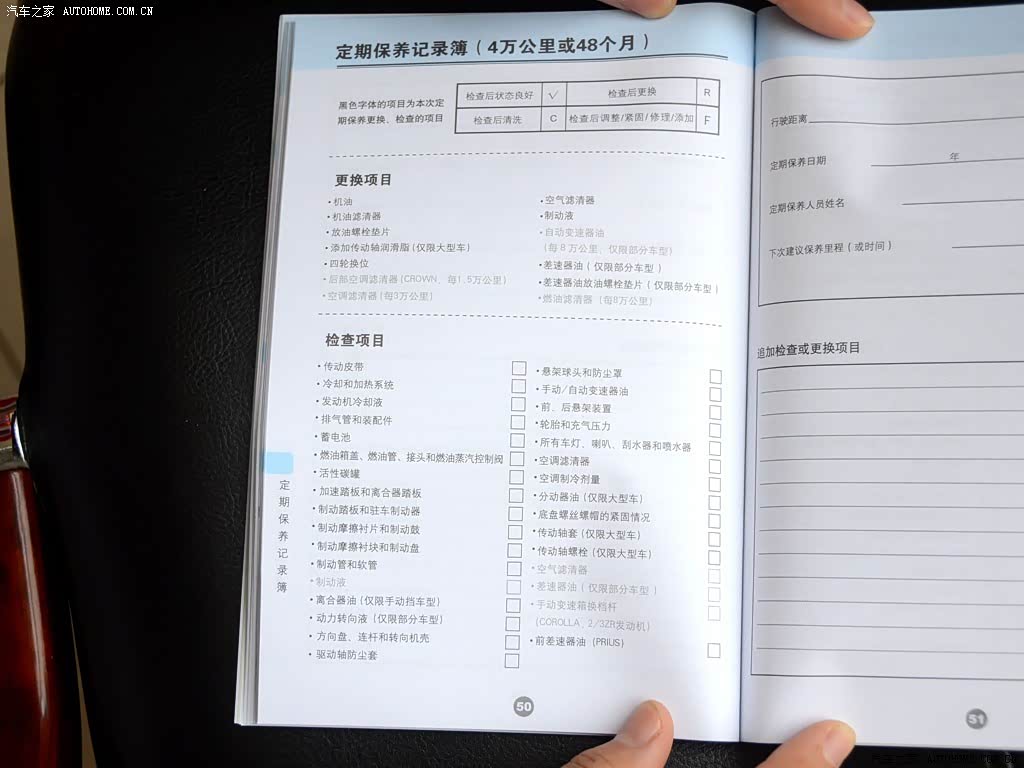 汽车之家 AUTOHOME.COM.CN
定期保养记录簿（4万公里或48个月）
黑色字体的项目为本次定
期保养更换、检查的项目
检查后状态良好 √ 检查后更换 R
检查后清洗 C 检查后调整/紧固/修理/添加 F
更换项目
•机油
•机油滤清器
•放油螺栓垫片
•添加传动轴润滑脂(仅限大型车)
•四轮换位
•后部空调滤清器(CROWN、每1.5万公里)
•空调滤清器(每3万公里)
•空气滤清器
•制动液
•自动变速器油
(每8万公里、仅限部分车型)
•差速器油(仅限部分车型)
•差速器油放油螺栓垫片(仅限部分车型)
•燃油滤清器(每8万公里)
检查项目
•传动皮带
•冷却和加热系统
•发动机冷却液
•排气管和装配件
•蓄电池
•燃油箱盖、燃油管、接头和燃油蒸汽控制阀
•活性碳罐
•加速踏板和离合器踏板
•制动踏板和驻车制动器
•制动摩擦衬片和制动鼓
•制动摩擦衬块和制动盘
•制动管和软管
•制动液
•离合器油(仅限手动挡车型)
•动力转向液(仅限部分车型)
•方向盘、连杆和转向机壳
•驱动轴防尘套
•悬架球头和防尘罩
•手动/自动变速器油
•前、后悬架装置
•轮胎和充气压力
•所有车灯、喇叭、刮水器和喷水器
•空调滤清器
•空调制冷剂量
•分动器油(仅限大型车)
•底盘螺丝螺帽的紧固情况
•传动轴套(仅限大型车)
•传动轴螺栓(仅限大型车)
•空气滤清器
•差速器油(仅限部分车型)
•手动变速箱换档杆
(COROLLA、2/3ZR发动机)
•前差速器油(PRIUS)
定期保养记录簿
50
行驶距离
定期保养日期 年
定期保养人员姓名
下次建议保养里程(或时间)
追加检查或更换项目
51